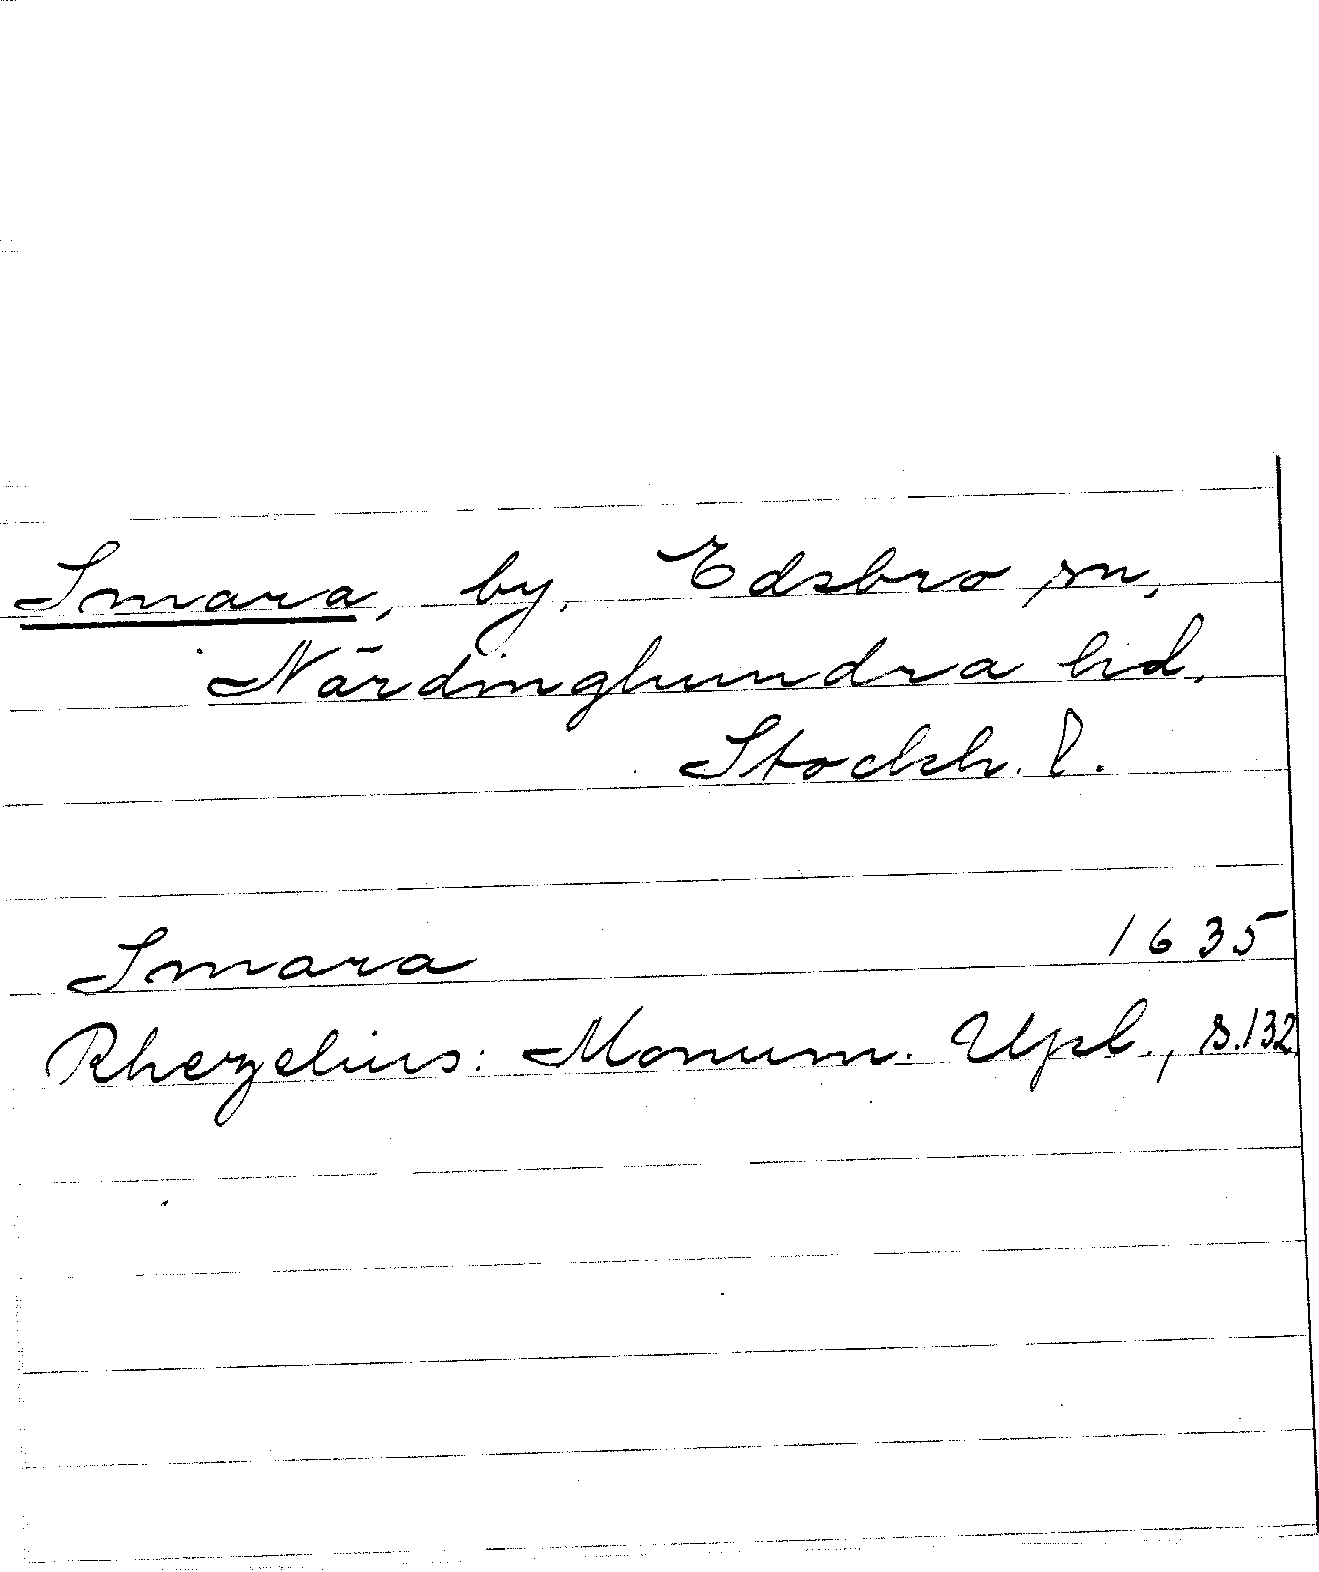 Smara, by, Edsbro sn,
Närdinghundra hd.
Stockh. l.
Smara 1635
Rhezelius: Monum. Upl., s. 132